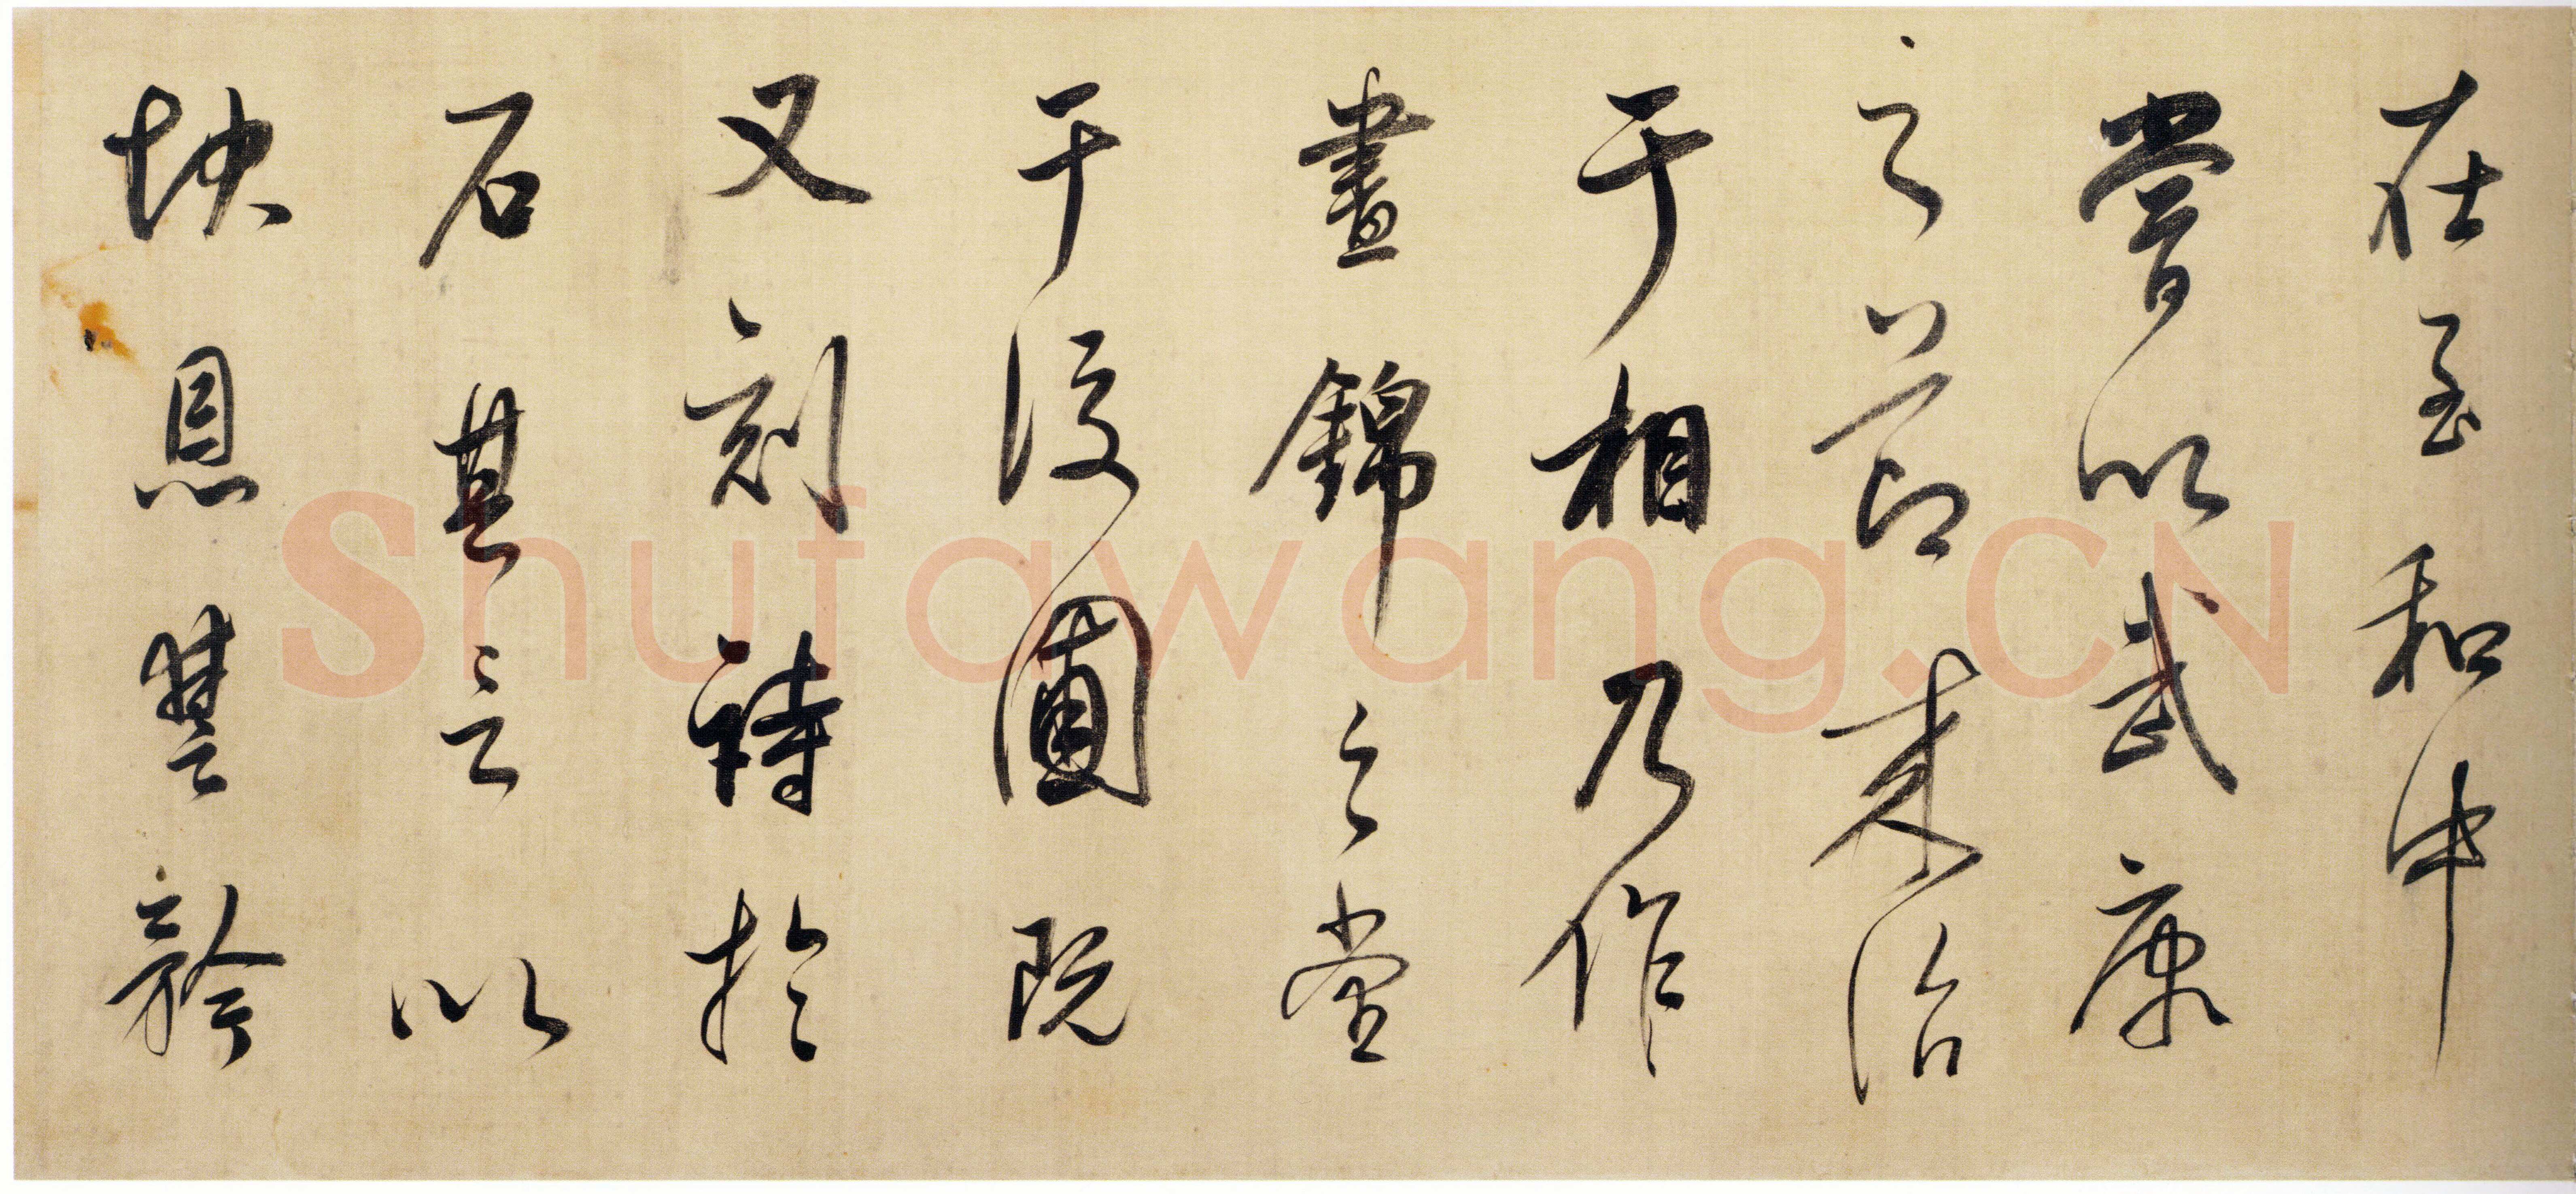 在至和中
嘗以武康
之節来治
于相乃作
晝錦之堂
于後圃既
又刻詩於
石其言以
快恩讐矜
Shufawang.CN